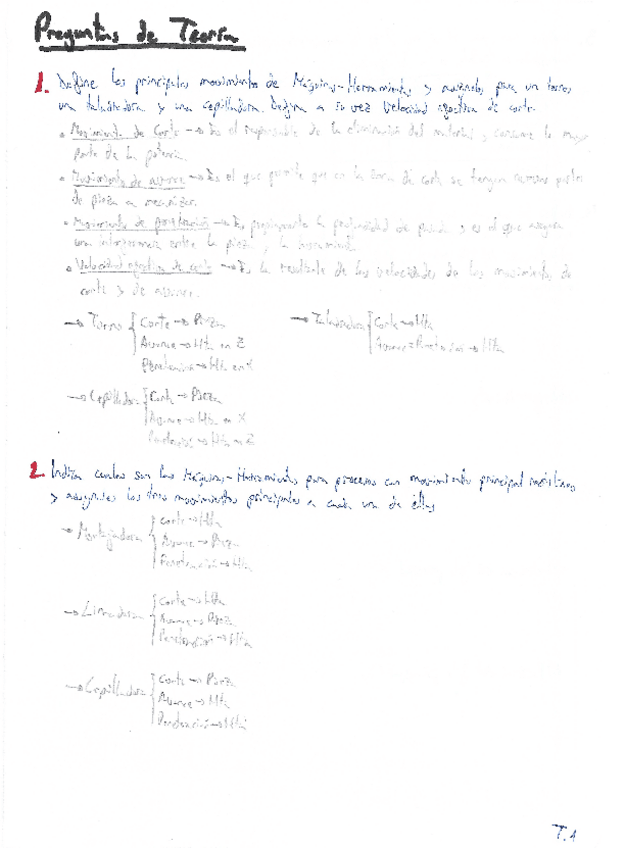 Preguntas de Teoría
1. Define los principales movimientos de Máquinas-Herramientas y asígnalos para un torno
una taladradora y una cepilladora. Defina a su vez velocidad efectiva de corte.
• Movimiento de corte → Es el responsable de la eliminación del material, consume la mayor
parte de la potencia.
• Movimiento de avance → Es el que permite que en la zona de corte se tengan nuevas partes
de pieza a mecanizar.
• Movimiento de penetración → Es la profundidad de pasada y es el que asegura
una interferencia entre la pieza y la herramienta
• Velocidad efectiva de corte → Es la resultante de las velocidades de los movimientos de
corte y de avance.
→ Torno { Corte → Pieza
Avance → Hta en Z
Penetración → Hta en X
→ Taladradora { Corte → Hta
Avance = Penetración → Hta
→ Cepilladora { Corte → Pieza
Avance → Hta en X
Penetración → Hta en Z
2. Indica cuales son las Máquinas-Herramientas para procesos con movimiento principal rectilíneo
y asígnales los tres movimientos principales a cada una de ellas
→ Mortajadora { Corte → Hta
Avance → Pieza
Penetración → Hta
→ Limadora { Corte → Hta
Avance → Pieza
Penetración → Hta
→ Cepilladora { Corte → Pieza
Avance → Hta
Penetración → Hta
T.1